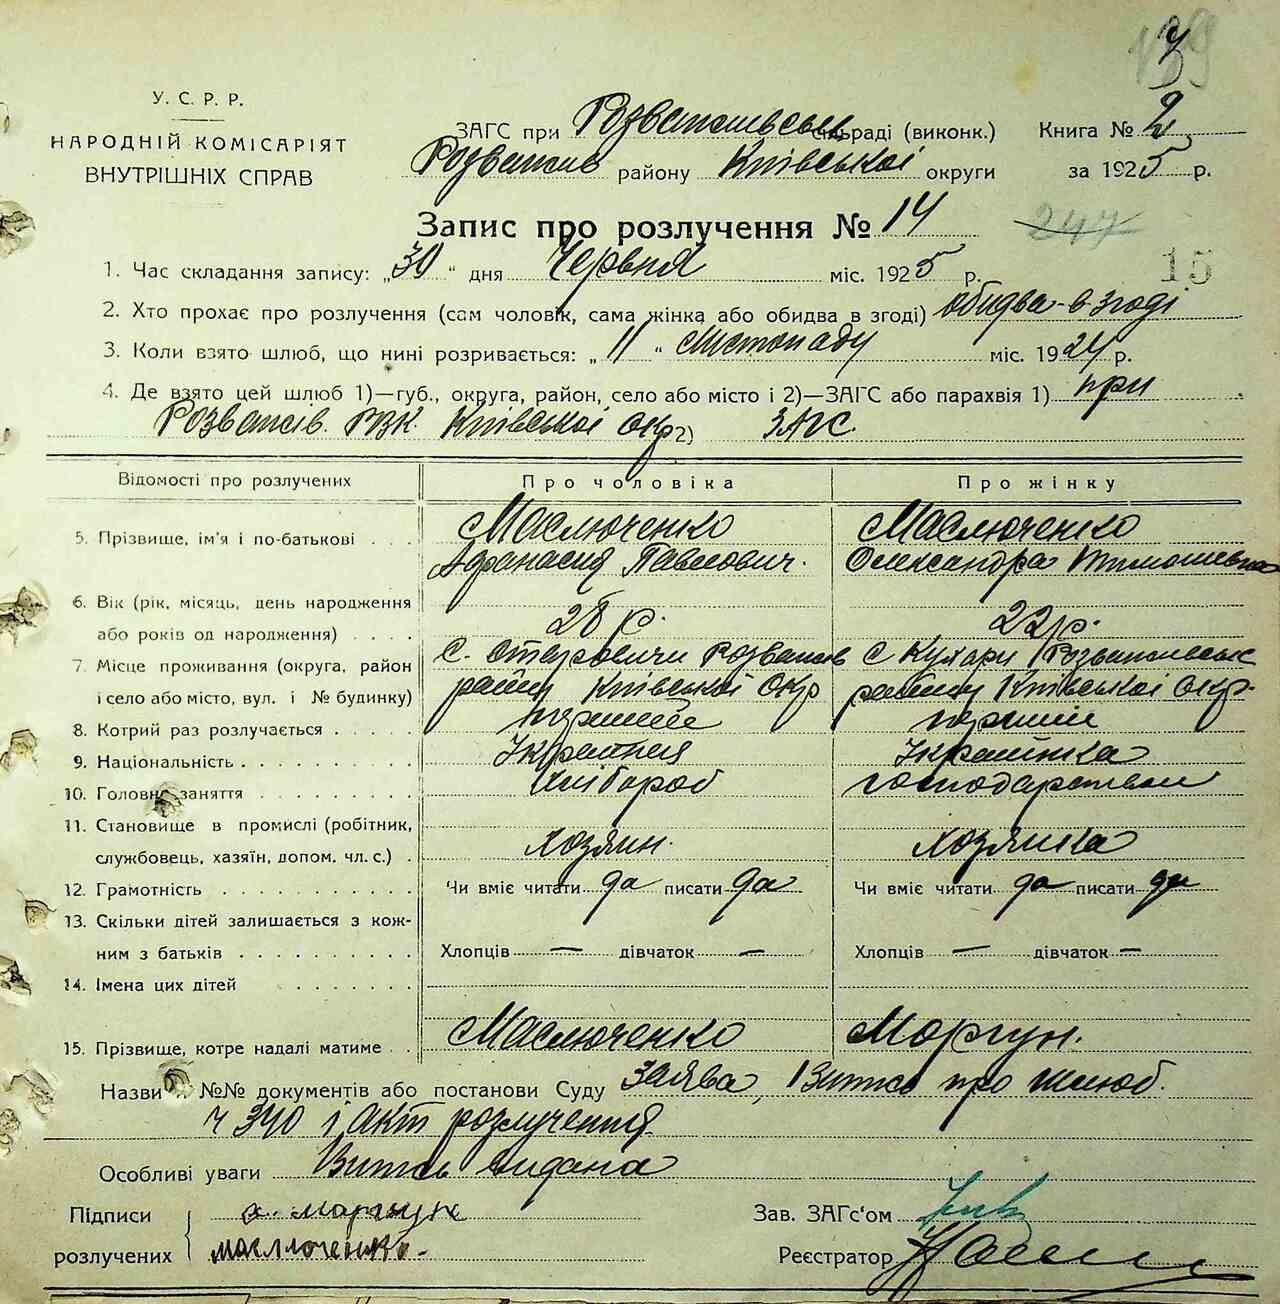 139
3
У. С. Р. Р.
НАРОДНІЙ КОМІСАРІЯТ
ВНУТРІШНІХ СПРАВ
ЗАГС при Розважівськ сільраді (виконк.) Книга № 2
Розважів району Київської округи за 1925 р.
Запис про розлучення № 14
247
15
1. Час складання запису: „30" дня Червня міс. 1925 р.
2. Хто прохає про розлучення (сам чоловік, сама жінка або обидва в згоді) обидва в згоді
3. Коли взято шлюб, що нині розривається: „11" Листопаду міс. 1924 р.
4. Де взято цей шлюб 1)—губ., округа, район, село або місто і 2)—ЗАГС або парахвія 1) при
Розважів. РВК. Київської окр 2) ЗАГС
Відомості про розлучених Про чоловіка Про жінку
5. Прізвище, ім'я і по-батькові Маслюченко Маслюченко
Афанасия Павлович. Олександра Тимошевна
6. Вік (рік, місяць, день народження
або років од народження) 28 р. 22 р.
7. Місце проживання (округа, район с. Старовичи Розважів с Кухари Розважівськ
і село або місто, вул. і № будинку) райну Київської окр райну Київської окр.
8. Котрий раз розлучається перший перший
9. Національність Українця Українка
10. Головне заняття хлібороб господарством
11. Становище в промислі (робітник,
службовець, хазяїн, допом. чл. с.) хозяин. хозяйка
12. Грамотність Чи вміє читати да писати да Чи вміє читати да писати да
13. Скільки дітей залишається з кож-
ним з батьків Хлопців — дівчаток — Хлопців — дівчаток —
14. Імена цих дітей
15. Прізвище, котре надалі матиме Маслюченко Моргун.
Назви і №№ документів або постанови Суду Заява, Витяг про шлюб.
ч 340 і акт розлучення
Особливі уваги Витяг видана
Підписи о. моргун Зав. ЗАГс'ом
розлучених маслюченко. Реєстратор